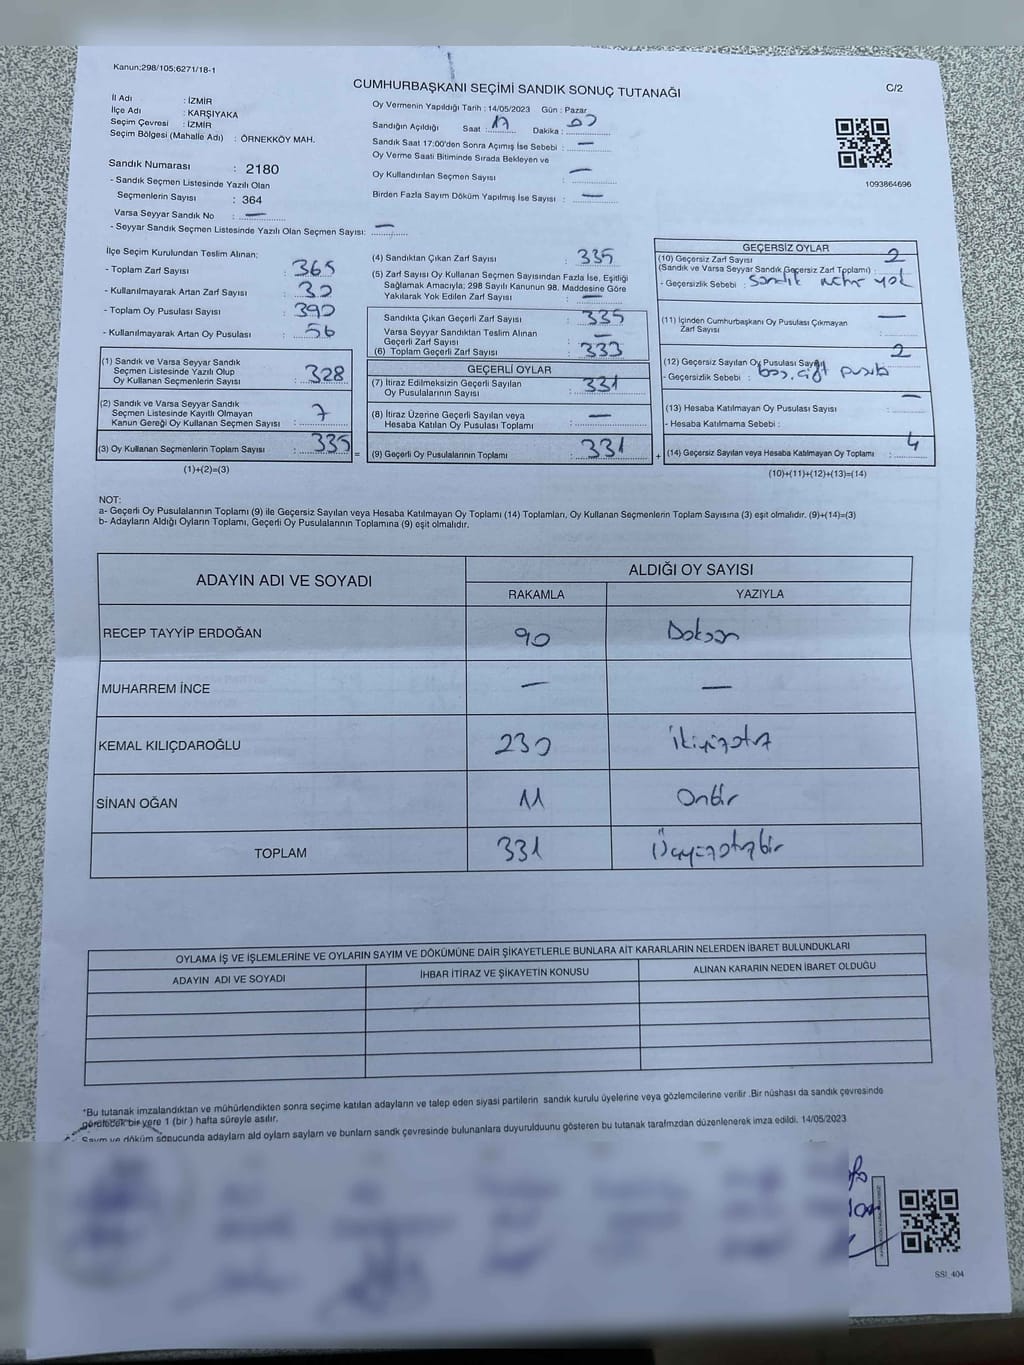 Kanun;298/105;6271/18-1
CUMHURBAŞKANI SEÇİMİ SANDIK SONUÇ TUTANAĞI
C/2
İl Adı : İZMİR
İlçe Adı : KARŞIYAKA
Seçim Çevresi : İZMİR
Seçim Bölgesi (Mahalle Adı) : ÖRNEKKÖY MAH.
Sandık Numarası : 2180
- Sandık Seçmen Listesinde Yazılı Olan
Seçmenlerin Sayısı : 364
Varsa Seyyar Sandık No : —
- Seyyar Sandık Seçmen Listesinde Yazılı Olan Seçmen Sayısı: —
Oy Vermenin Yapıldığı Tarih : 14/05/2023 Gün : Pazar
Sandığın Açıldığı Saat : 17 Dakika :
Sandık Saat 17:00'den Sonra Açımış İse Sebebi : —
Oy Verme Saati Bitiminde Sırada Bekleyen ve
Oy Kullandırılan Seçmen Sayısı —
Birden Fazla Sayım Döküm Yapılmış İse Sayısı : —
1093864696
İlçe Seçim Kurulundan Teslim Alınan;
- Toplam Zarf Sayısı : 365
- Kullanılmayarak Artan Zarf Sayısı : 30
- Toplam Oy Pusulası Sayısı : 390
- Kullanılmayarak Artan Oy Pusulası : 56
(1) Sandık ve Varsa Seyyar Sandık
Seçmen Listesinde Yazılı Olup
Oy Kullanan Seçmenlerin Sayısı : 328
(2) Sandık ve Varsa Seyyar Sandık
Seçmen Listesinde Kayıtlı Olmayan
Kanun Gereği Oy Kullanan Seçmen Sayısı : 7
(3) Oy Kullanan Seçmenlerin Toplam Sayısı : 335
(1)+(2)=(3)
(4) Sandıktan Çıkan Zarf Sayısı : 335
(5) Zarf Sayısı Oy Kullanan Seçmen Sayısından Fazla İse, Eşitliği
Sağlamak Amacıyla; 298 Sayılı Kanunun 98. Maddesine Göre
Yakılarak Yok Edilen Zarf Sayısı : —
Sandıkta Çıkan Geçerli Zarf Sayısı : 335
Varsa Seyyar Sandıktan Teslim Alınan
Geçerli Zarf Sayısı : —
(6) Toplam Geçerli Zarf Sayısı : 333
GEÇERLİ OYLAR
(7) İtiraz Edilmeksizin Geçerli Sayılan
Oy Pusulalarının Sayısı : 331
(8) İtiraz Üzerine Geçerli Sayılan veya
Hesaba Katılan Oy Pusulası Toplamı : —
(9) Geçerli Oy Pusulalarının Toplamı : 331
=
+
GEÇERSİZ OYLAR
(10) Geçersiz Zarf Sayısı 2
(Sandık ve Varsa Seyyar Sandık Geçersiz Zarf Toplamı) :
- Geçersizlik Sebebi : Sandık mührü yok
(11) İçinden Cumhurbaşkanı Oy Pusulası Çıkmayan —
Zarf Sayısı
(12) Geçersiz Sayılan Oy Pusulası Sayısı 2
- Geçersizlik Sebebi : boş, çift pusula
(13) Hesaba Katılmayan Oy Pusulası Sayısı : —
- Hesaba Katılmama Sebebi :
(14) Geçersiz Sayılan veya Hesaba Katılmayan Oy Toplamı : 4
(10)+(11)+(12)+(13)=(14)
NOT:
a- Geçerli Oy Pusulalarının Toplamı (9) ile Geçersiz Sayılan veya Hesaba Katılmayan Oy Toplamı (14) Toplamları, Oy Kullanan Seçmenlerin Toplam Sayısına (3) eşit olmalıdır. (9)+(14)=(3)
b- Adayların Aldığı Oyların Toplamı, Geçerli Oy Pusulalarının Toplamına (9) eşit olmalıdır.
ADAYIN ADI VE SOYADI
ALDIĞI OY SAYISI
RAKAMLA YAZIYLA
RECEP TAYYİP ERDOĞAN 90 Doksan
MUHARREM İNCE — —
KEMAL KILIÇDAROĞLU 230 ikiyüzotuz
SİNAN OĞAN 11 Onbir
TOPLAM 331 Üçyüzotuzbir
OYLAMA İŞ VE İŞLEMLERİNE VE OYLARIN SAYIM VE DÖKÜMÜNE DAİR ŞİKAYETLERLE BUNLARA AİT KARARLARIN NELERDEN İBARET BULUNDUKLARI
ADAYIN ADI VE SOYADI İHBAR İTİRAZ VE ŞİKAYETİN KONUSU ALINAN KARARIN NEDEN İBARET OLDUĞU
*Bu tutanak imzalandıktan ve mühürlendikten sonra seçime katılan adayların ve talep eden siyasi partilerin sandık kurulu üyelerine veya gözlemcilerine verilir .Bir nüshası da sandık çevresinde
görülecek bir yere 1 (bir ) hafta süreyle asılır.
Sayım ve döküm sonucunda adayların ald oyların sayları ve bunların sandk çevresinde bulunanlara duyurulduunu gösteren bu tutanak tarafmzdan düzenlenerek imza edildi. 14/05/2023
SSI_404